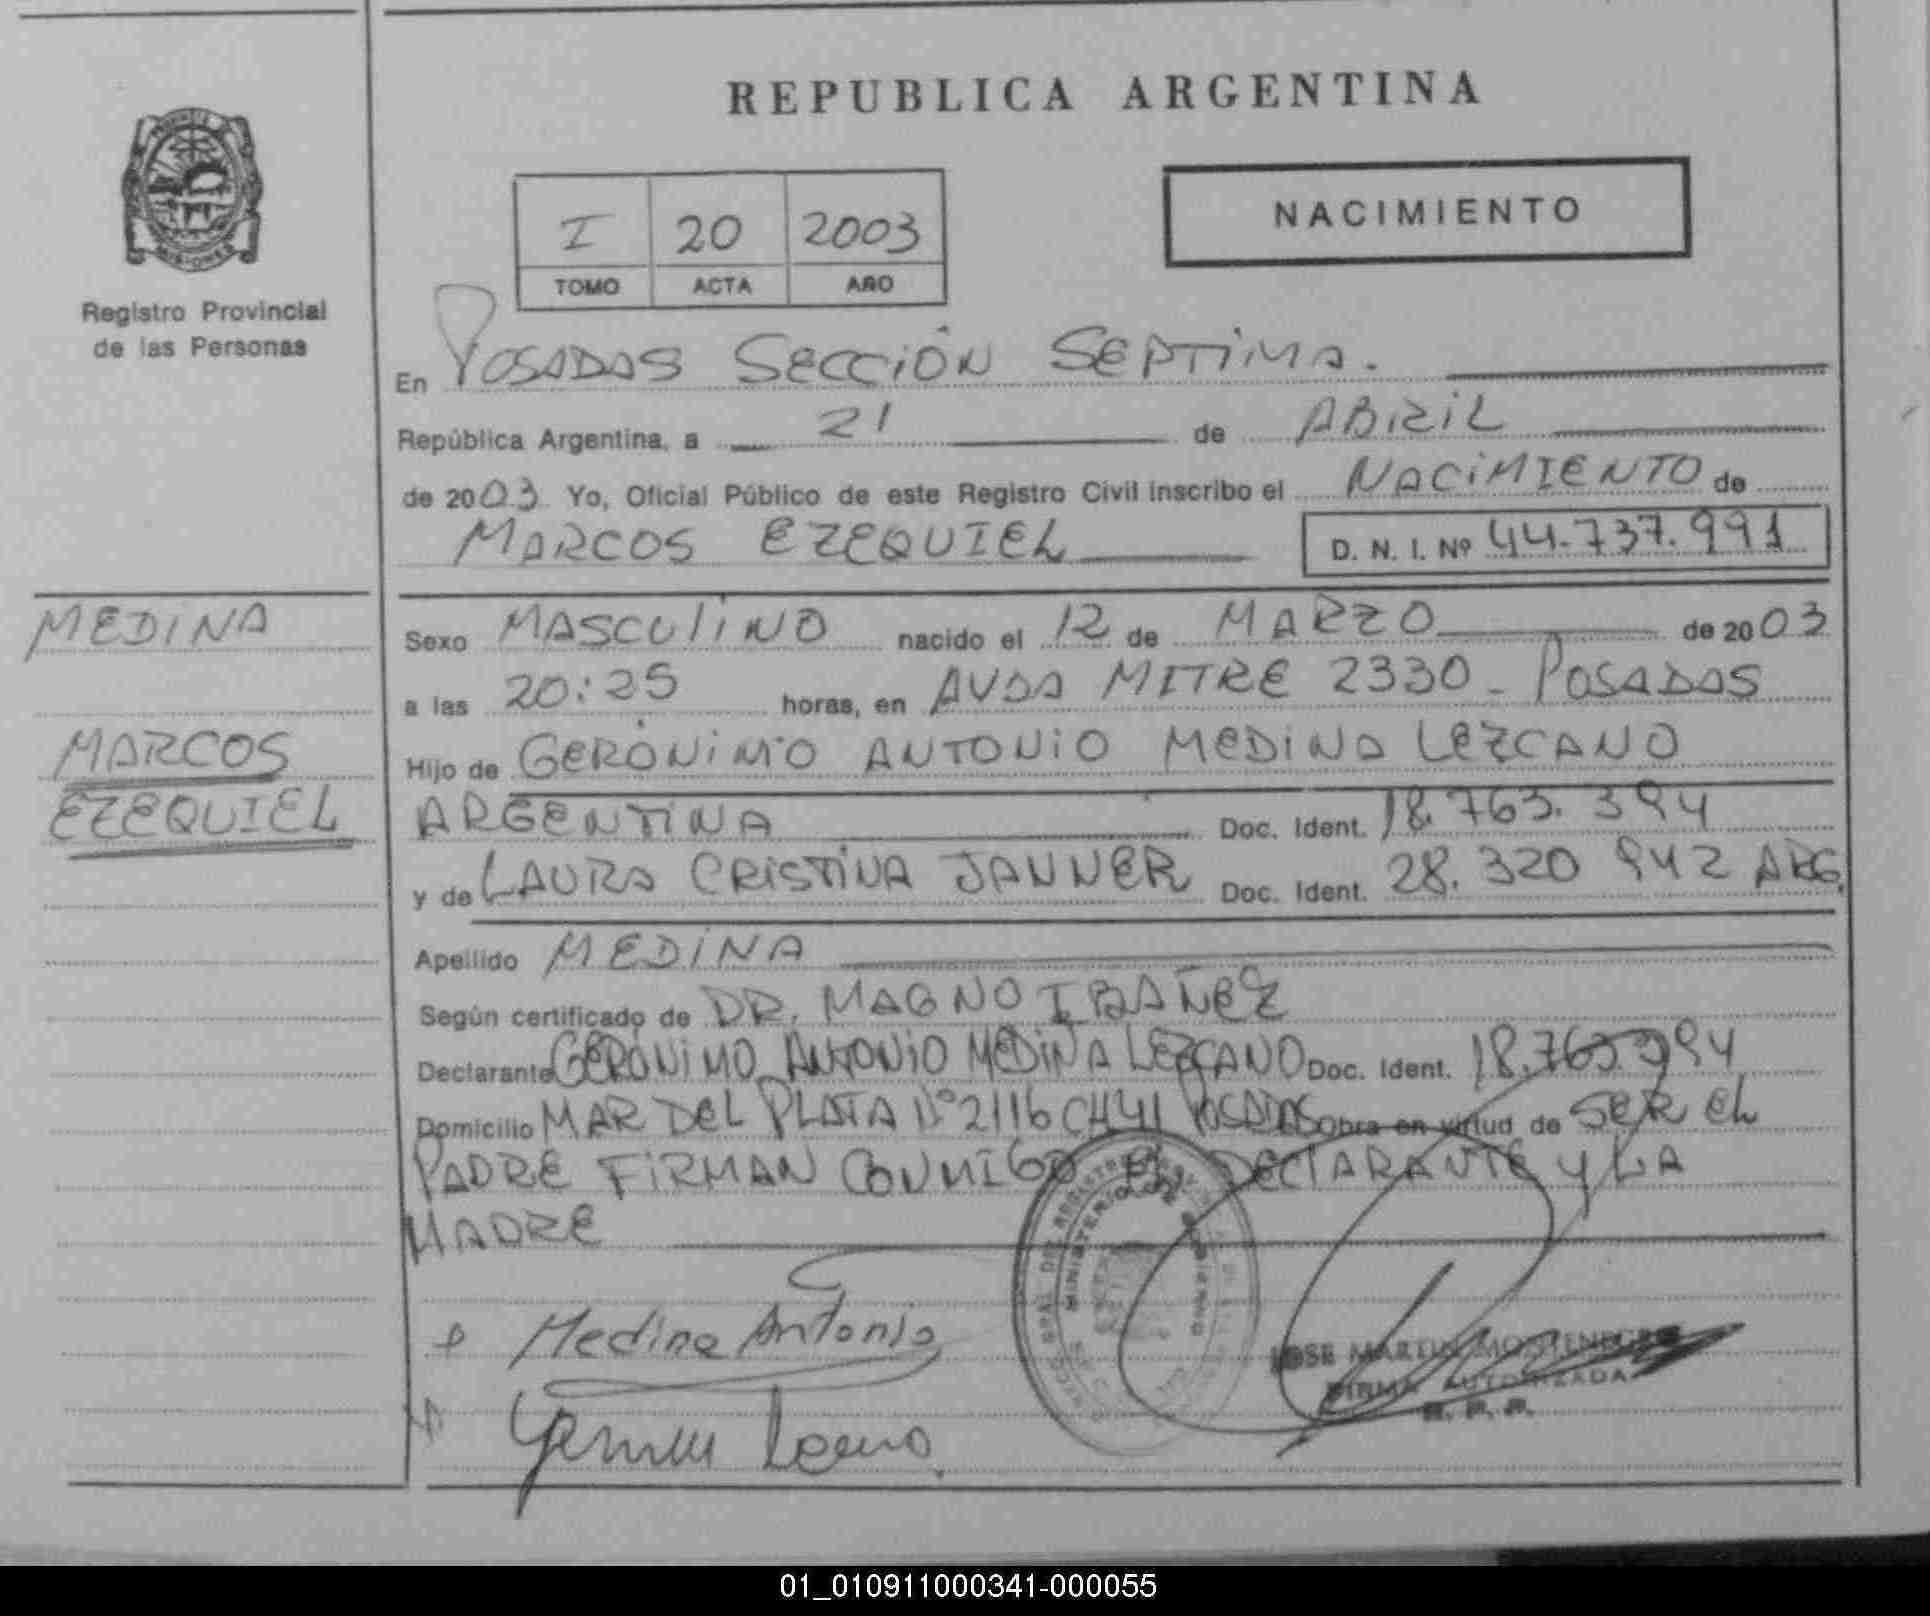 REPUBLICA ARGENTINA
NACIMIENTO
I 20 2003
TOMO ACTA AÑO
Registro Provincial
de las Personas
En POSADAS SECCIÓN SEPTIMA.
República Argentina, a 21 de ABRIL
de 2003. Yo, Oficial Público de este Registro Civil inscribo el NACIMIENTO de
MARCOS EZEQUIEL D. N. I. Nº 44.737.991
MEDINA
MARCOS
EZEQUIEL
Sexo MASCULINO nacido el 12 de MARZO de 2003
a las 20:25 horas, en AVDA MITRE 2330 - POSADAS
Hijo de GERÓNIMO ANTONIO MEDINA LEZCANO
ARGENTINA Doc. Ident. 18.763.394
y de LAURA CRISTINA JANNER Doc. Ident. 28.320 942 ARG.
Apellido MEDINA
Según certificado de DR. MAGNO IBAÑEZ
Declarante GERÓNIMO ANTONIO MEDINA LEZCANO Doc. Ident. 18.763.394
Domicilio MAR DEL PLATA Nº 2116 CH41 POSADAS obra en virtud de SER EL
PADRE FIRMAN CONMIGO EL DECLARANTE Y LA
MADRE
Medina Antonio
JOSE MARTIN MONTENEGRO
FIRMA AUTORIZADA
R. P. P.
MINISTERIO DE GOBIERNO
01_010911000341-000055